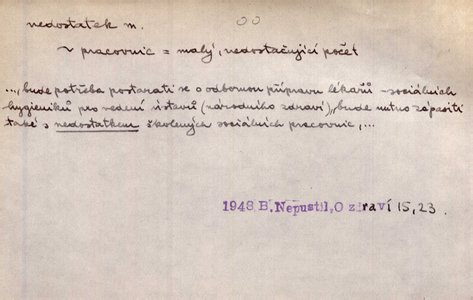 nedostatek m.
~ pracovnic = malý, nedostačující počet
..., bude potřeba postarati se o odbornou přípravu lékařů - sociálních
hygieniků pro vedení ústavů (národního zdraví), bude nutno zápasiti
také s nedostatkem školených sociálních pracovnic, ...
1948 B. Nepustil, O zdraví 15, 23.